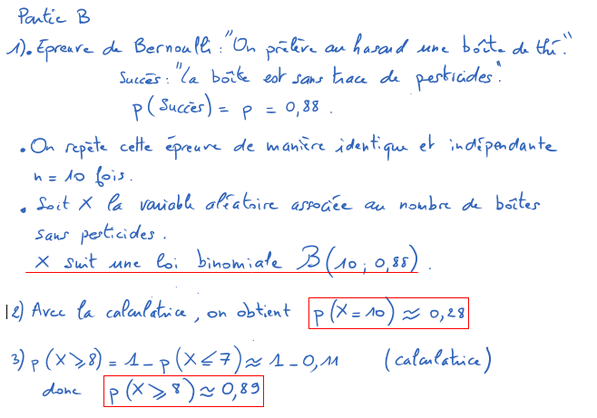 Partie B
1). Épreuve de Bernoulli : "On prélève au hasard une boîte de thé."
Succès : "la boîte est sans trace de pesticides".
p(Succès) = p = 0,88.
• On répète cette épreuve de manière identique et indépendante
n = 10 fois.
• Soit X la variable aléatoire associée au nombre de boîtes
sans pesticides.
X suit une loi binomiale B(10 ; 0,88).
2) Avec la calculatrice, on obtient p(X = 10) ≈ 0,28
3) p(X ⩾ 8) = 1 - p(X ⩽ 7) ≈ 1 - 0,11 (calculatrice)
donc p(X ⩾ 8) ≈ 0,89